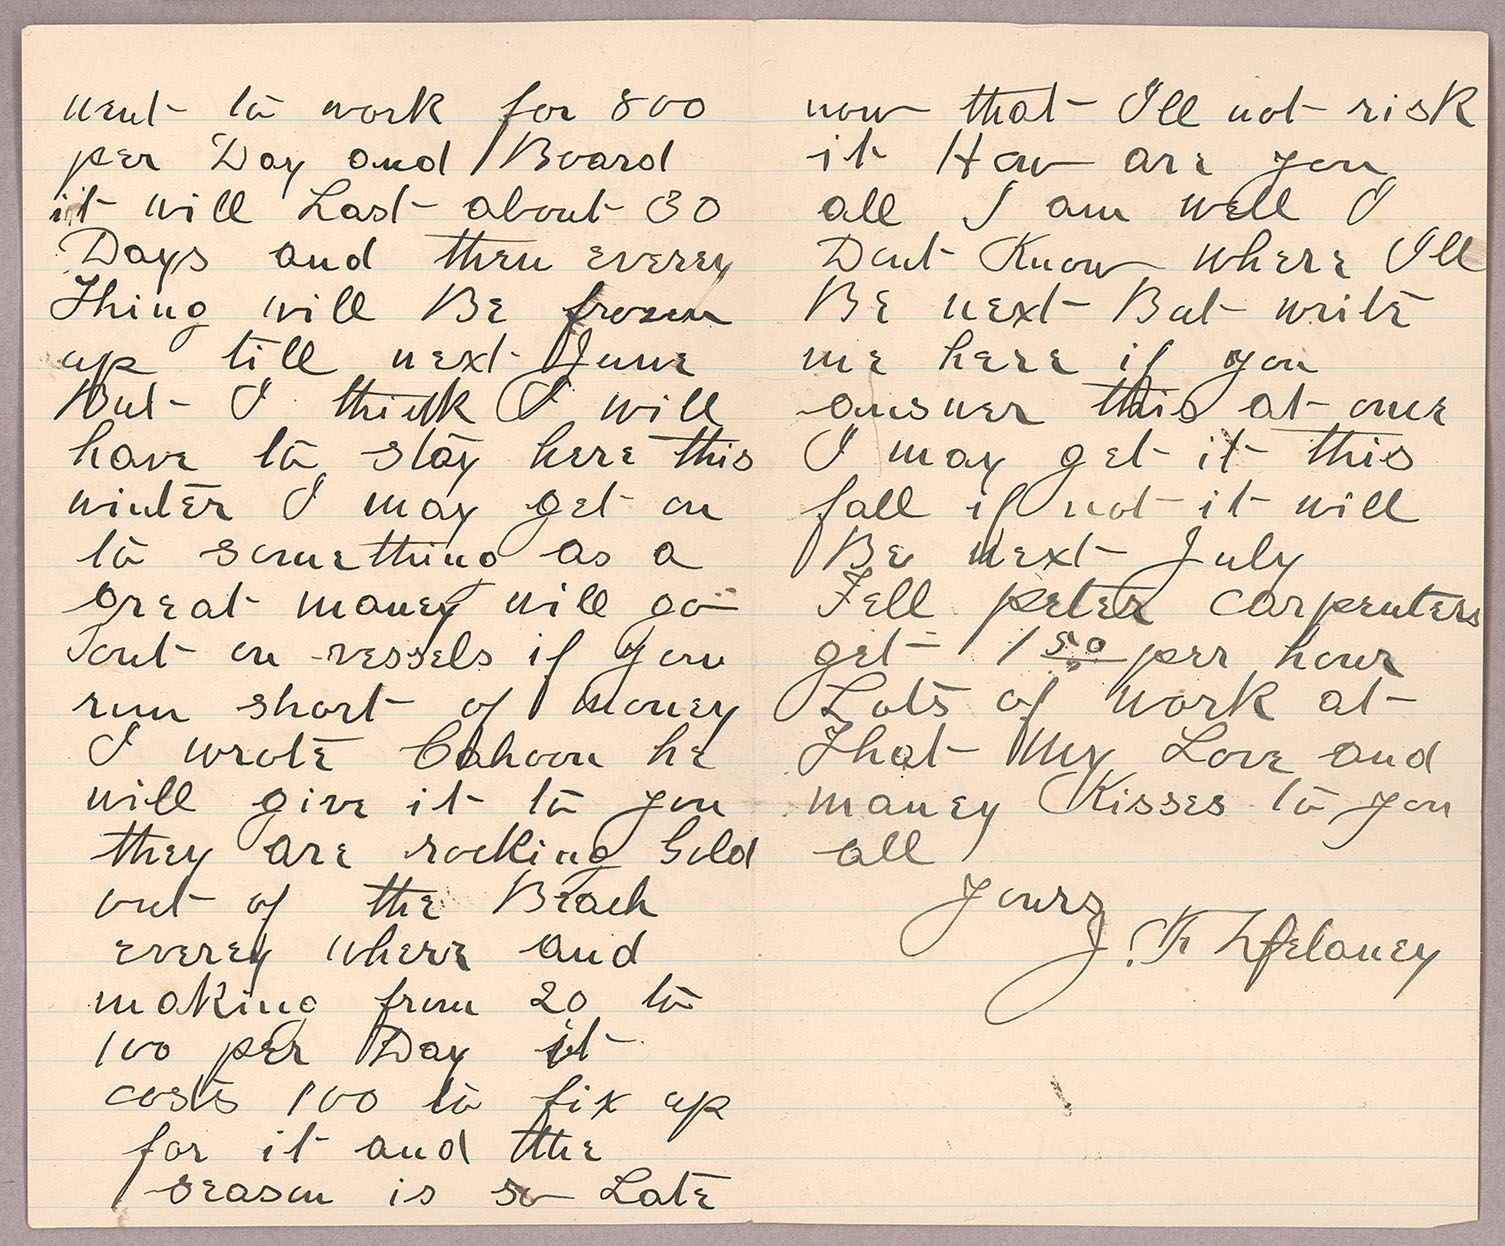 went to work for 800
per Day and Board
it will Last about 30
Days and then everey
Thing will Be frozen
up till next June
But I think I will
have to stay here this
winter I may get on
to something as a
great maney will go
out on vessels if you
run short of money
I wrote Cahoon he
will give it to you
they are rocking Gold
out of the Beach
everey where and
making from 20 to
100 per Day it
costs 100 to fix up
for it and the
season is so Late
now that I'll not risk
it How are you
all I am well I
Dont Know where I'll
Be next But write
me here if you
answer this at once
I may get it this
fall if not it will
Be next July
Tell peter carpenters
get 1 50 per hour
Lots of work at
That My Love and
maney Kisses to you
all
Yours
J. F Delaney